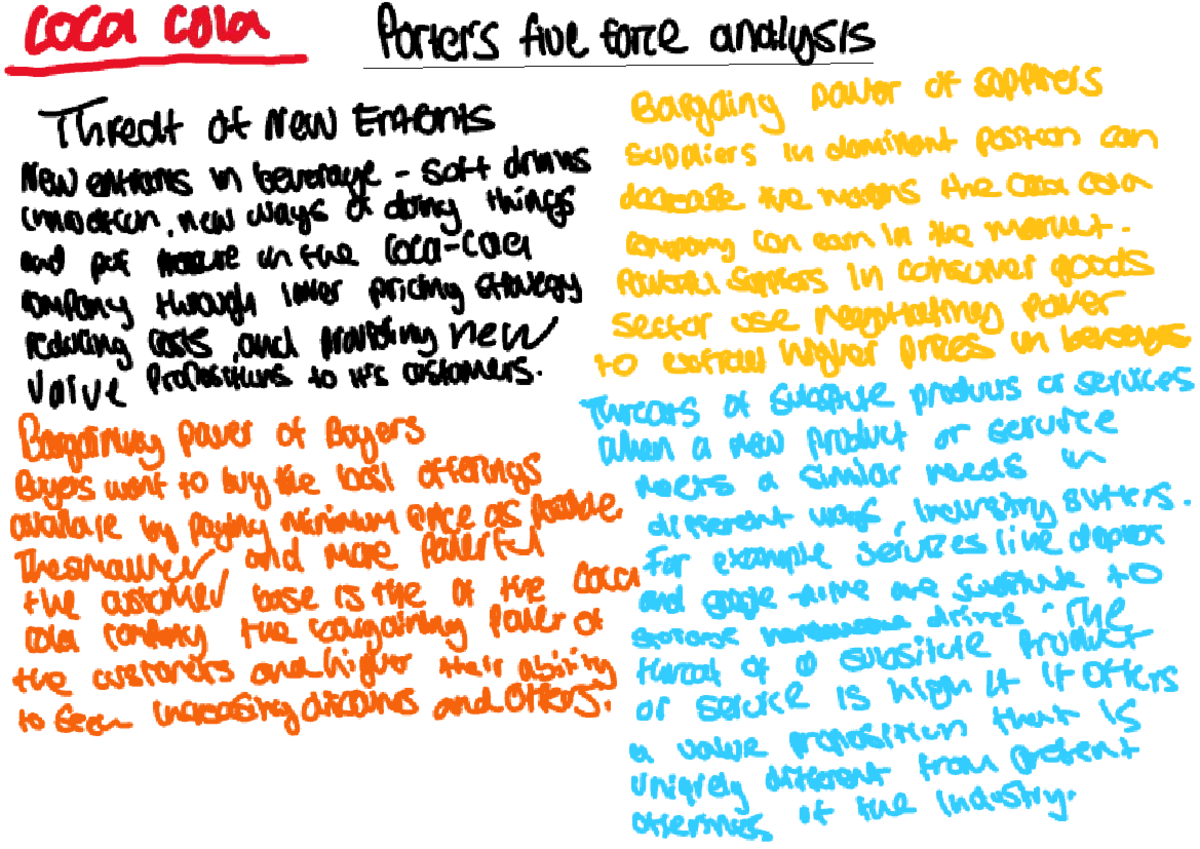 Coca Cola
Porter's five force analysis
Threat of New Entrants
New entrants in beverage - soft drinks
innovation, new ways of doing things
and put in the Coca-Cola
company through lower pricing strategy
reducing costs, and providing new
value propositions to it's customers.
Bargaining power of Buyers
Buyers want to buy the best offerings
available by paying minimum price as possible.
The smaller and more powerful
the customer base is the of the Coca
Cola company the bargaining power of
the customers and higher their ability
to seek increasing discounts and offers.
Bargaining power of suppliers
Suppliers in dominent position can
decrease the margins the Coca Cola
company can earn in the market.
Powerful suppliers in consumer goods
sector use negotiating power
to extract higher prices in
Threats of substitute products or services
When a new product or service
meets a similar needs in
different ways, industry suffers.
For example services like dropbox
and google drive are substitute to
storage drives. The
threat of a substitute product
or service is high if it offers
a value proposition that is
uniquely different from present
offerings of the industry.